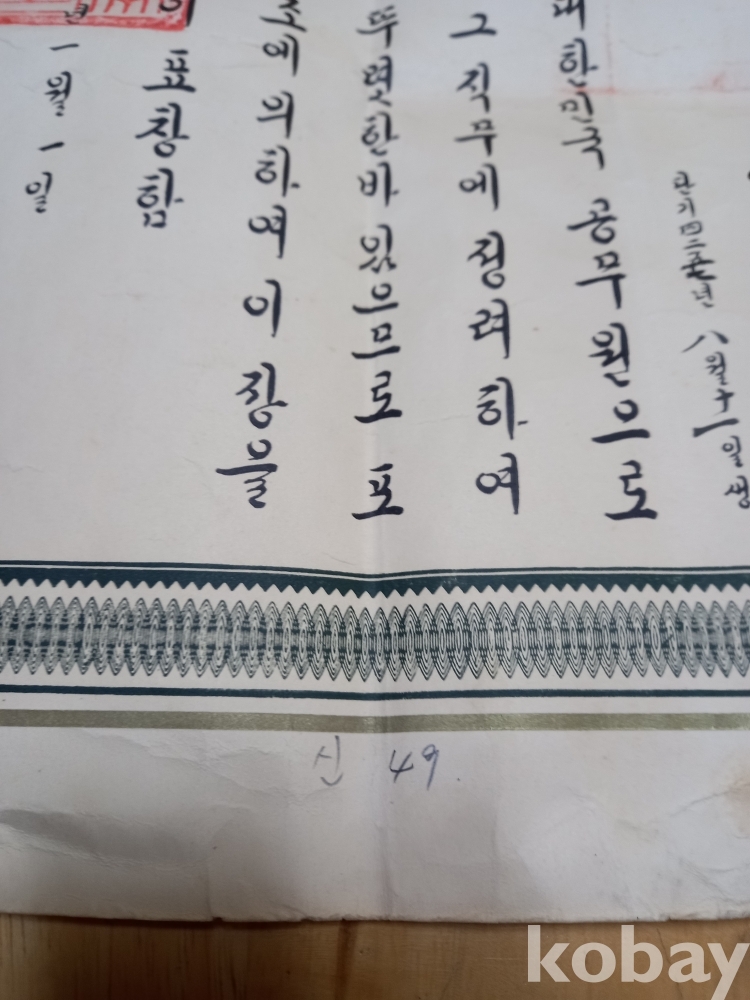 八월十一일생
대한민국 공무원으로
그 직무에 정려하여
뚜렷한바 있으므로 표
의하여 이 장을
표창함
一월 一일
신 49.
kobay